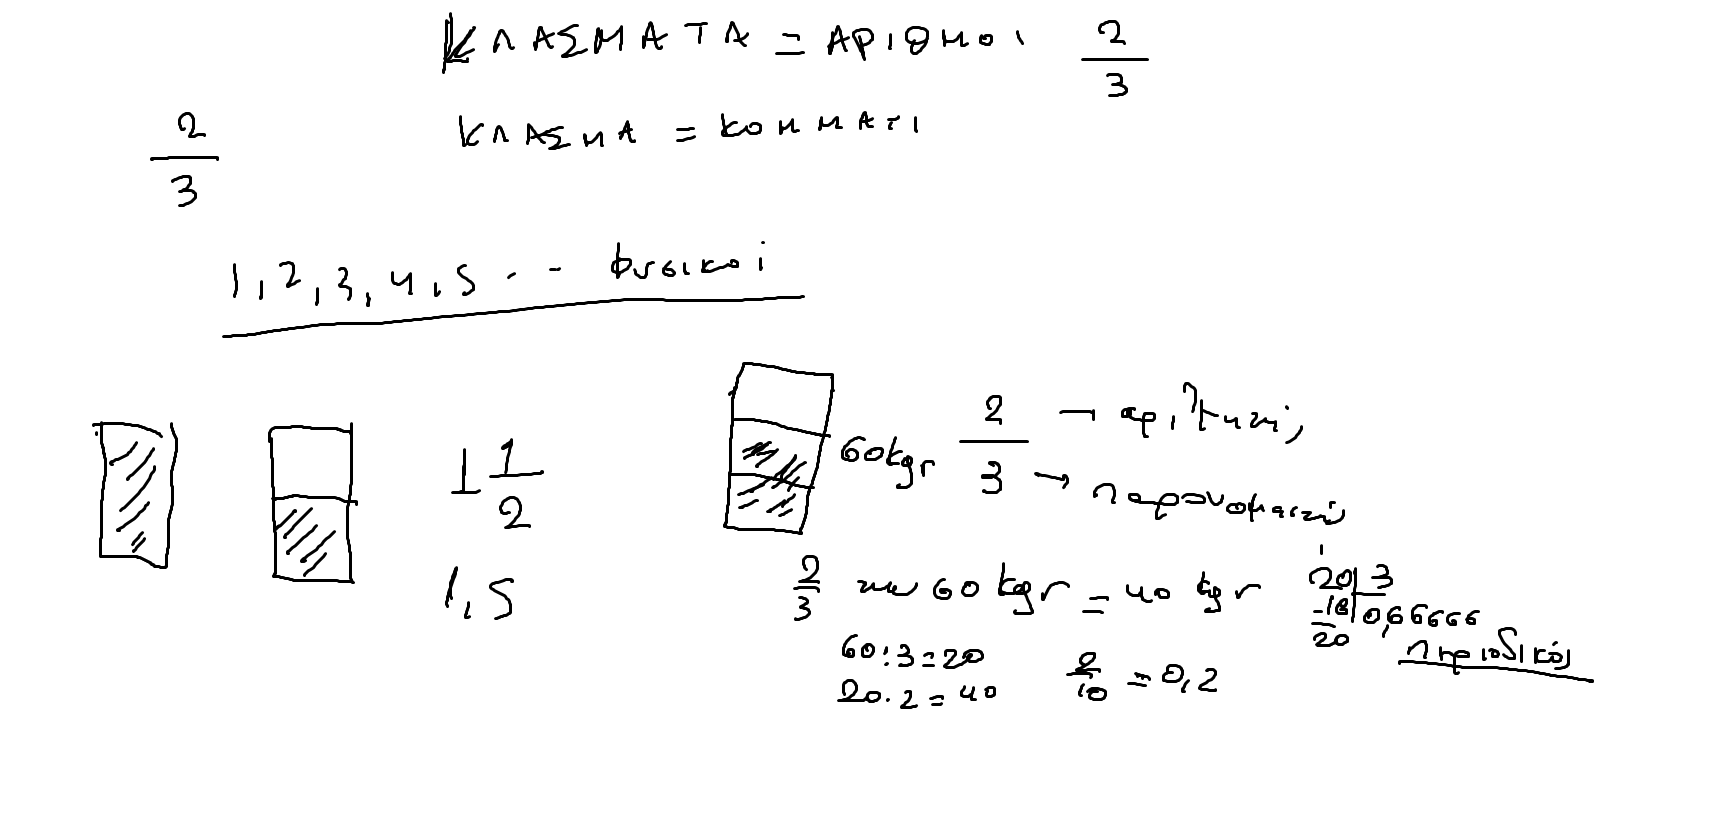 ΚΛΑΣΜΑΤΑ = ΑΡΙΘΜΟΙ 2/3
ΚΛΑΣΜΑ = ΚΟΜΜΑΤΙ
2/3
1,2,3,4,5 . - φυσικοί
1 1/2
1,5
60kgr
2 → αριθμητής
3 → παρονομαστής
2/3 των 60 kgr = 40 kgr
60:3=20
20.2=40
2/10 = 0,2
20 3
-18 0,66666
20
περιοδικός